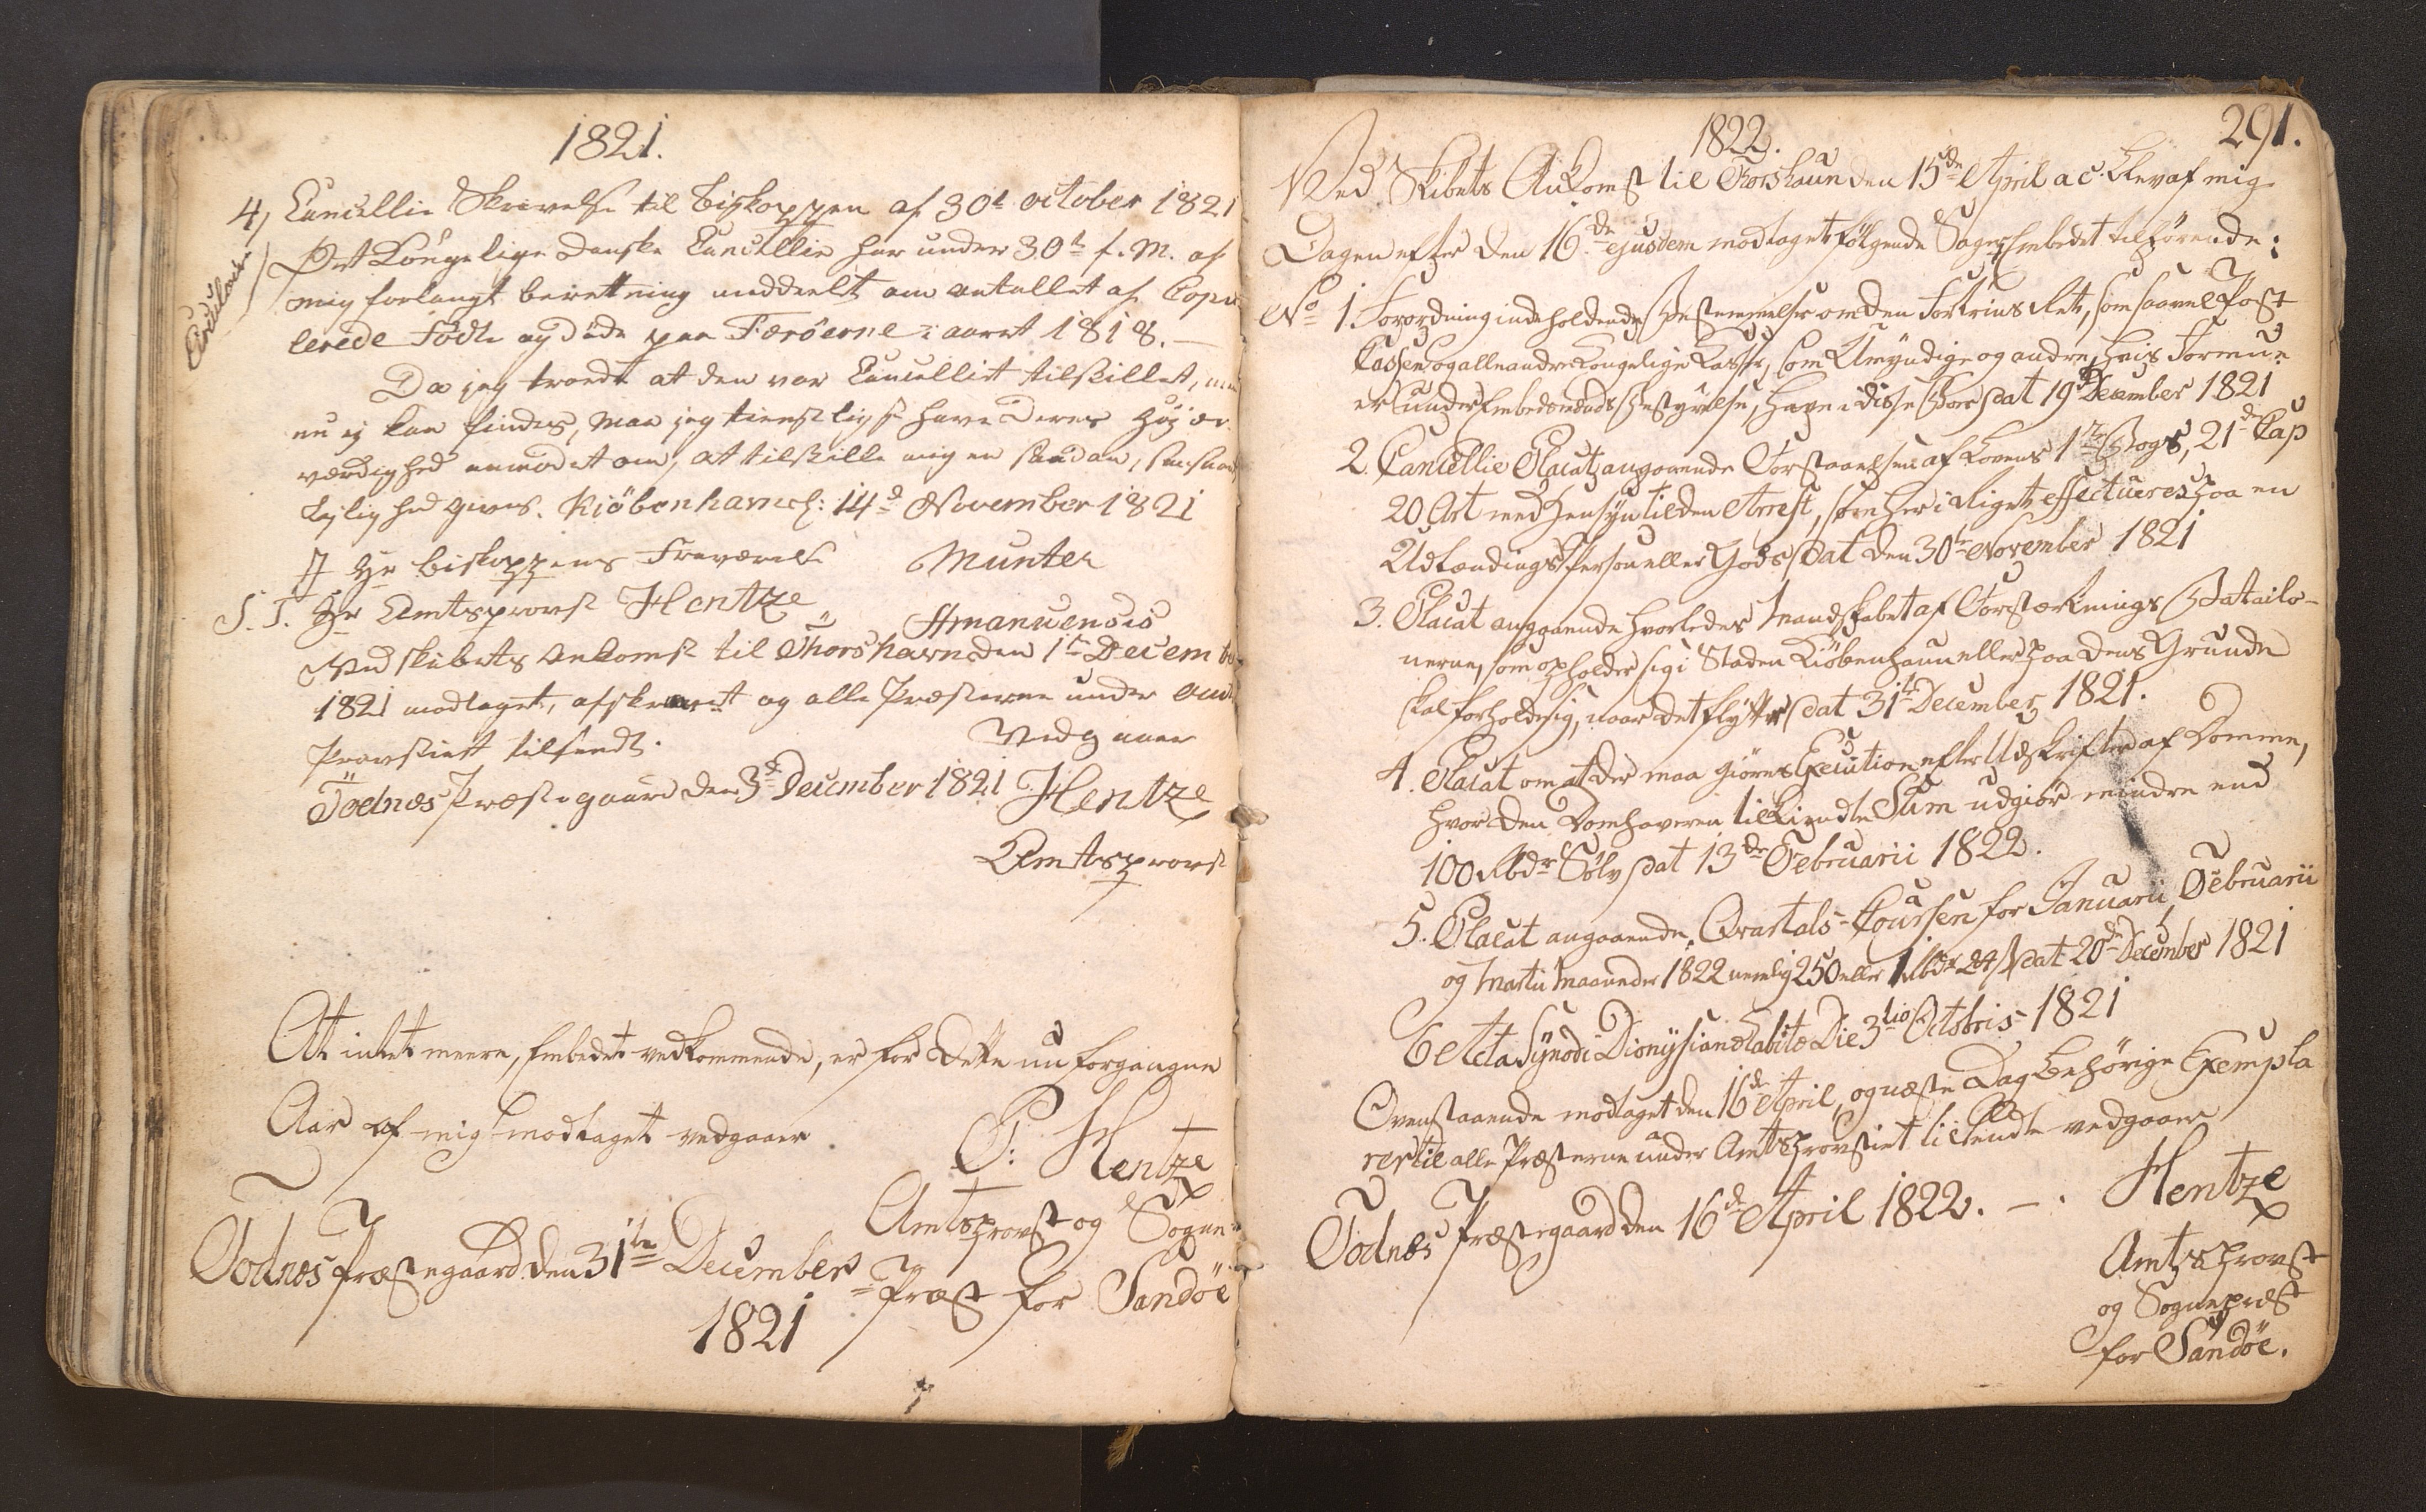 1821.
4, Cancellie Skrivelse til Biskoppen af 30t october 1821
Circulaire
Det Kongelige Danske Cancellie har under 30te f. M. af
mig forlangt beretning meddeelt om antallet af Copu
lerede Födte og döde paa Færöerne i aaret 1818. —
Da jeg troede at den var Cancelliet tilstillet, men
nu ej kan findes, maa jeg tienstligst have Deres Höjær
værdighed anmodet om, at tilstille mig en saadan, saasnart
Lejlighed gives. Kiöbenhavn d: 14d November 1821
I Hr Biskoppens Fraværelse Munter
S. T. Hr Amtsprovst Hentze Amanuensis
Ved skibets Ankomst til Thorshavn den 1te Decemb
1821 modtaget, afskrevet og alle Præsterne under Amts
Provstiet tilsendt. Vedgaaer
Todnæs Præstegaard den 3de December 1821 Hentze
Amtsprovst
At intet meere, Embedet vedkommende, er for dette nu forgangne
Aar af mig modtaget vedgaaer.
P: Hentze
Amtsprovst og Sogne-
Todnæs Præstegaard den 31te December =Præst for Sandöe
1821
1822. 291.
Ved Skibets Ankomst til Thorshavn den 15de April a c. blev af mig
Dagen efter den 16de ejusdem modtaget følgende Sager Embedet tilhørende:
No 1. Forordning indeholdende Bestemmelser om den Fortrins Ret, som saavel Post
Cassen og alle andre Kongelige Casser, som Umyndige og andre, hvis Formue
er under Embedsmænds Bestyrelse, have i disse Boer dat 19de December 1821
2. Cancellie Placat angaaende Forstaaelsen af Lovens 1te Bogs, 21de Cap
20 Art med Hensyn til den Arrest, som her i Riget effectueres paa en
Udlændings Person eller Gods dat den 30te November 1821
3. Placat angaaende hvorledes Mandskabet af Forstærknings Batailo-
nerne, som opholder sig i Staden Kiöbenhavn eller paa dens Grunde
skal forholde sig, naar det flytter dat 31te December 1821.
4. Placat om at der maa giøres Execution efter Udskrifter af Domme,
hvor den Domhaveren tilkiendte Sum udgiør mindre end
100 Rbdr Sølv dat 13de Februarii 1822.
5. Placat angaaende Qvartals-Coursen for Januarii, Februarii
og Martii Maaneder 1822 nemlig 250 eller 1 Rbdr 24 s dat 20de December 1821
6 Acta Synodi Dionysianæ habitæ Die 3tio Octobris 1821
Ovenstaaende modtaget den 16de April, og næste Dag behørige Exempla
rer til alle Præsterne under Amtsprovstiet tilsendte vedgaaer
Todnæs Præstegaard den 16de April 1822. — . Hentze
Amtsprovst
og Sognepræst
for Sandöe.